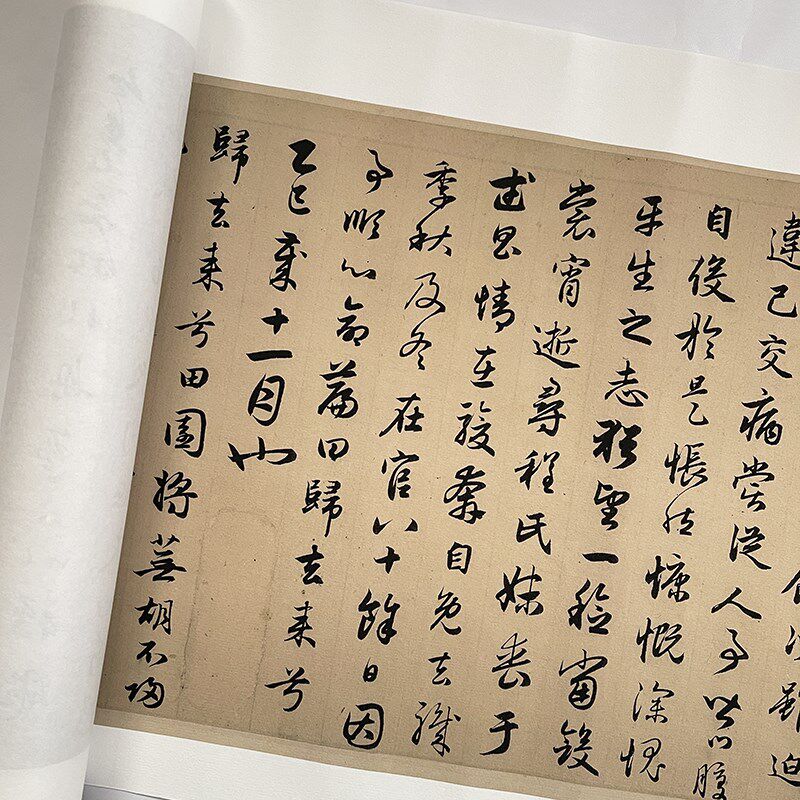 雖迫
違己交病嘗從人事皆口腹
自役於是悵然慷慨深愧
平生之志猶望一稔當斂
裳宵逝尋程氏妹喪于
武昌情在駿奔自免去職
季秋及冬在官八十餘日因
事順心命篇曰歸去来兮
乙巳歲十一月也
歸去来兮田園將蕪胡不歸